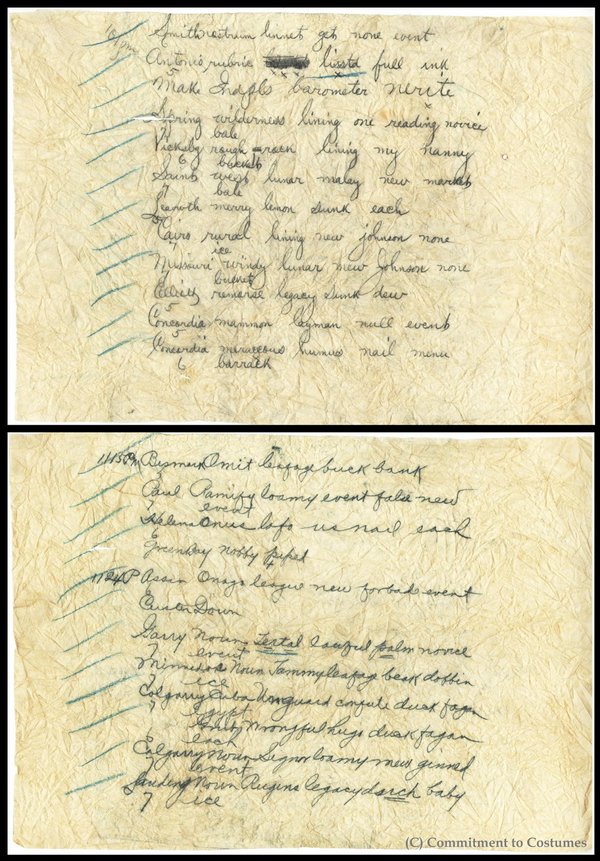 Smith nostrum linnet get none event
Antonio rubric lissta full ink
5
Make Indpls barometer nerite
Spring wilderness lining one reading novice
7 bale
Vicksbg rough rack lining my nanny
6 bucket
Saints west lunar malay new market
7 bale
Leavth merry lemon sunk each
Cairo rural lining new johnson none
7 ice
Missouri windy lunar new Johnson none
bucket
Celliette remorse legacy sunk dew
5
Concordia mammon layman null events
5
Concordia meraccous humus nail menu
6 barrack
1115 Pm Bismark Omit leafage buck bank
Paul Pamify loamy event false new
7 event
Helena Onus lofo us nail each
6
Green Bay nobby piped
4
1124 P Assin Onago league new forbade event
Custer Down
Garry Noun Tertal lawful palm novice
7 event
Minnedos Noun Jammy leafage beak dobbin
7 ice
Calgarry Cuba Unguard confute duck fagan
7 Egypt
Wrongful hugo duck fagan
6 each
Calgarry Noun Signor loamy new ginned
7 event
Landing Noun Rugins legacy duck baby
7 ice
(C) Commitment to Costumes